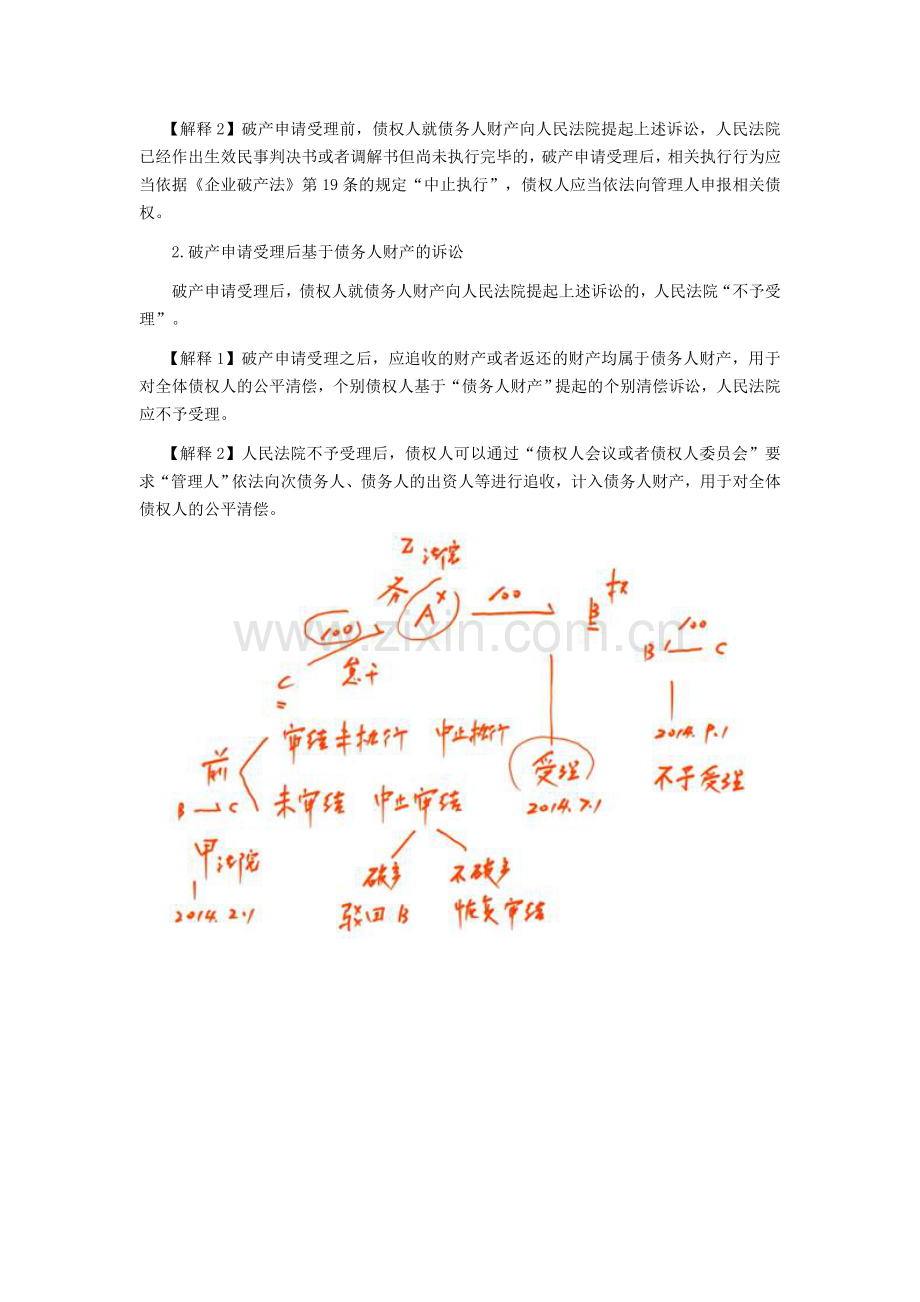 【解释2】破产申请受理前，债权人就债务人财产向人民法院提起上述诉讼，人民法院
已经作出生效民事判决书或者调解书但尚未执行完毕的，破产申请受理后，相关执行行为应
当依据《企业破产法》第 19 条的规定“中止执行”，债权人应当依法向管理人申报相关债
权。
2.破产申请受理后基于债务人财产的诉讼
破产申请受理后，债权人就债务人财产向人民法院提起上述诉讼的，人民法院“不予受
理”。
【解释1】破产申请受理之后，应追收的财产或者返还的财产均属于债务人财产，用于
对全体债权人的公平清偿，个别债权人基于“债务人财产”提起的个别清偿诉讼，人民法院
应不予受理。
【解释2】人民法院不予受理后，债权人可以通过“债权人会议或者债权人委员会”要
求“管理人”依法向次债务人、债务人的出资人等进行追收，计入债务人财产，用于对全体
债权人的公平清偿。
乙 法院
务 A × 100 B 权
100
怠于
C
B C 100
www.zixin.com.cn
审结未执行 中止执行
前
B → C
未审结 中止审结
受理
2014.7.1
2014.9.1
不予受理
甲法院
2014.2.1
破产 不破产
驳回 B 恢复审结